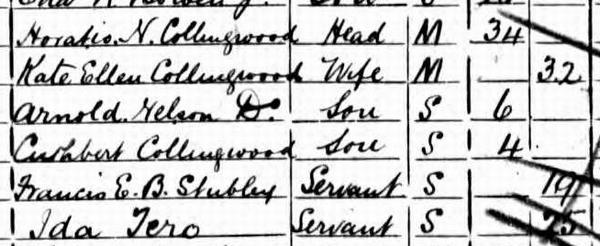 Horatio. N. Collingwood Head M 34
Kate Ellen Collingwood Wife M 32
Arnold. Nelson Do Son S 6
Cuthbert Collingwood Son S 4
Francis E. B. Stubley Servant S 19
Ida Tero Servant S 25